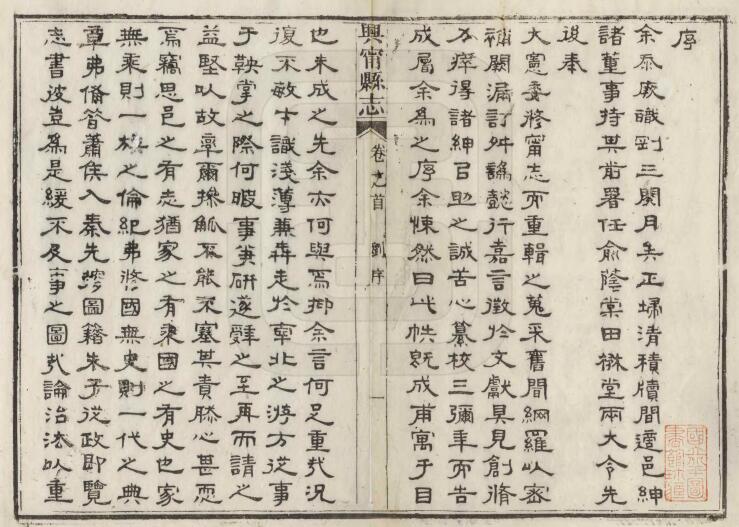 序
余忝厥職劄三閱月矣正埽清積牘間適邑紳
諸董事持其前署任俞蔭棠田楙堂兩大令先
後奉
大憲委修甯志而重輯之蒐采舊聞網羅以密
補闕漏訂舛譌懿行嘉言徵於文獻具見創脩
力瘁得諸紳召助之誠苦心纂校三彌年而告
成屬余為之序余悚然曰此帙既成甫寓于目
興甯縣志
卷之首 劉序 一
也未成之先余亦何與焉抑余言何足重哉況
復不敏才識淺薄兼犇走於寧北之游方從事
于鞅掌之際何暇事筆研遂辭之至再而請之
益堅以故率爾操觚不能不塞其責勝心甚恧
焉竊思邑之有志猶家之有乘國之有史也家
無乘則一族之倫紀弗修國無史則一代之典
章弗備昔蕭侯入秦先收圖籍朱子從政即覽
志書彼豈為是緩不及事之圖哉論治法以重